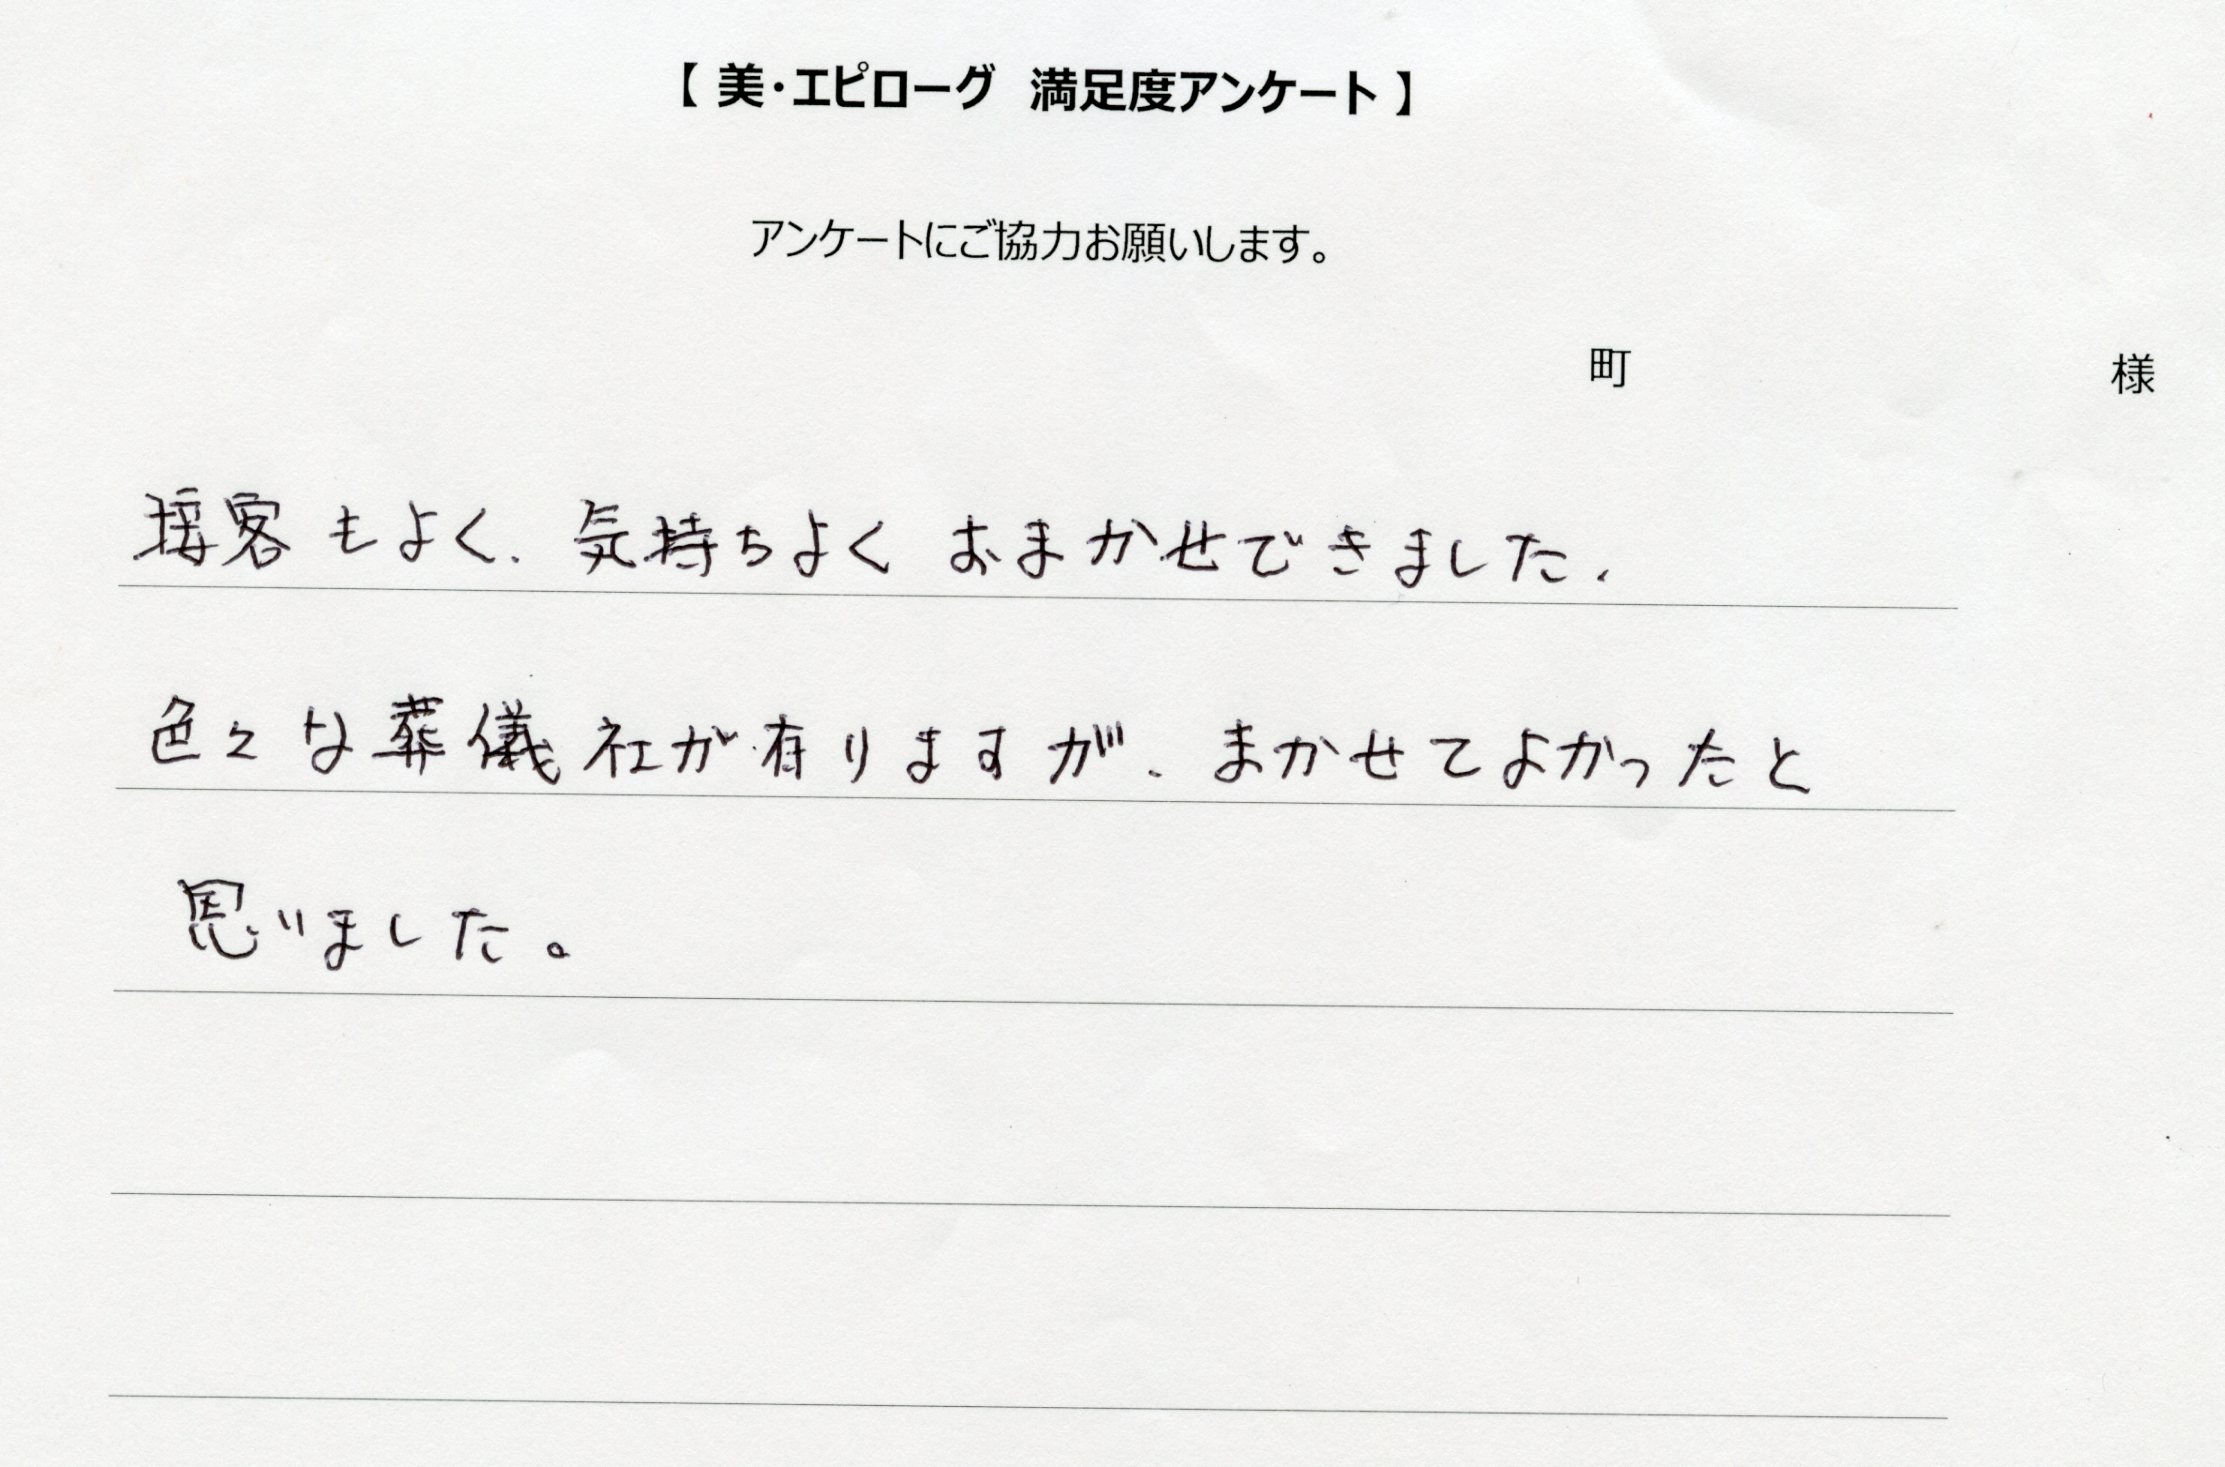 【 美・エピローグ　満足度アンケート 】
アンケートにご協力お願いします。
町　様
接客もよく、気持ちよくおまかせできました、
色々な葬儀社が有りますが、まかせてよかったと
思いました。